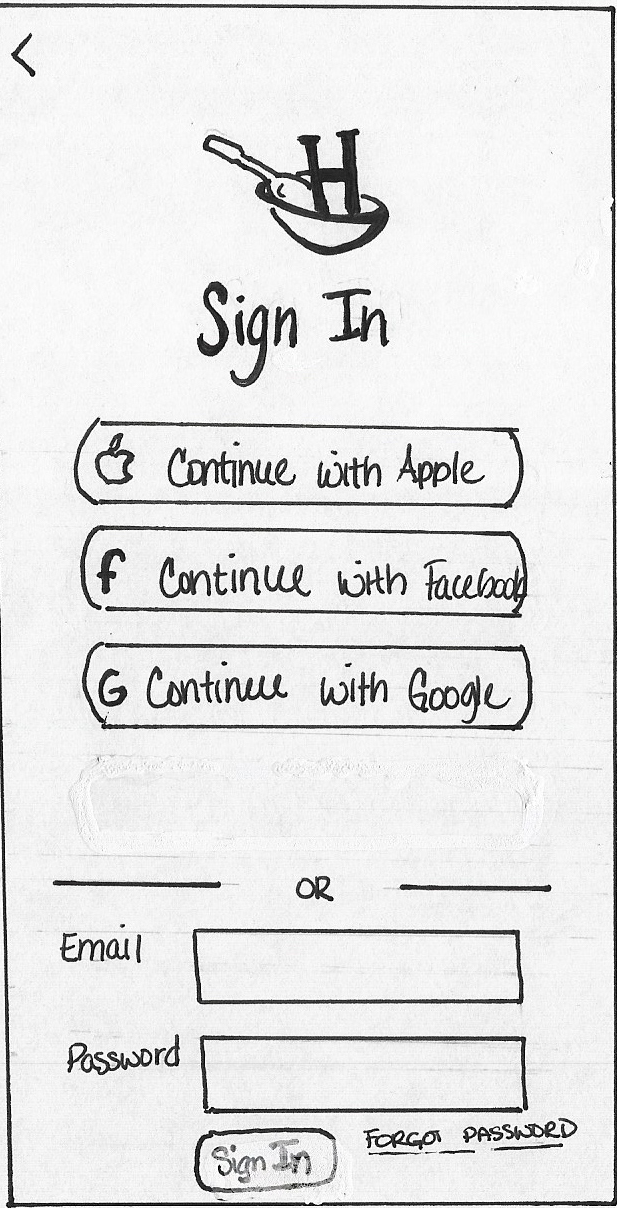 <
H
Sign In
Continue with Apple
f Continue with Facebook
G Continue with Google
OR
Email
Password
Sign In
FORGOT PASSWORD